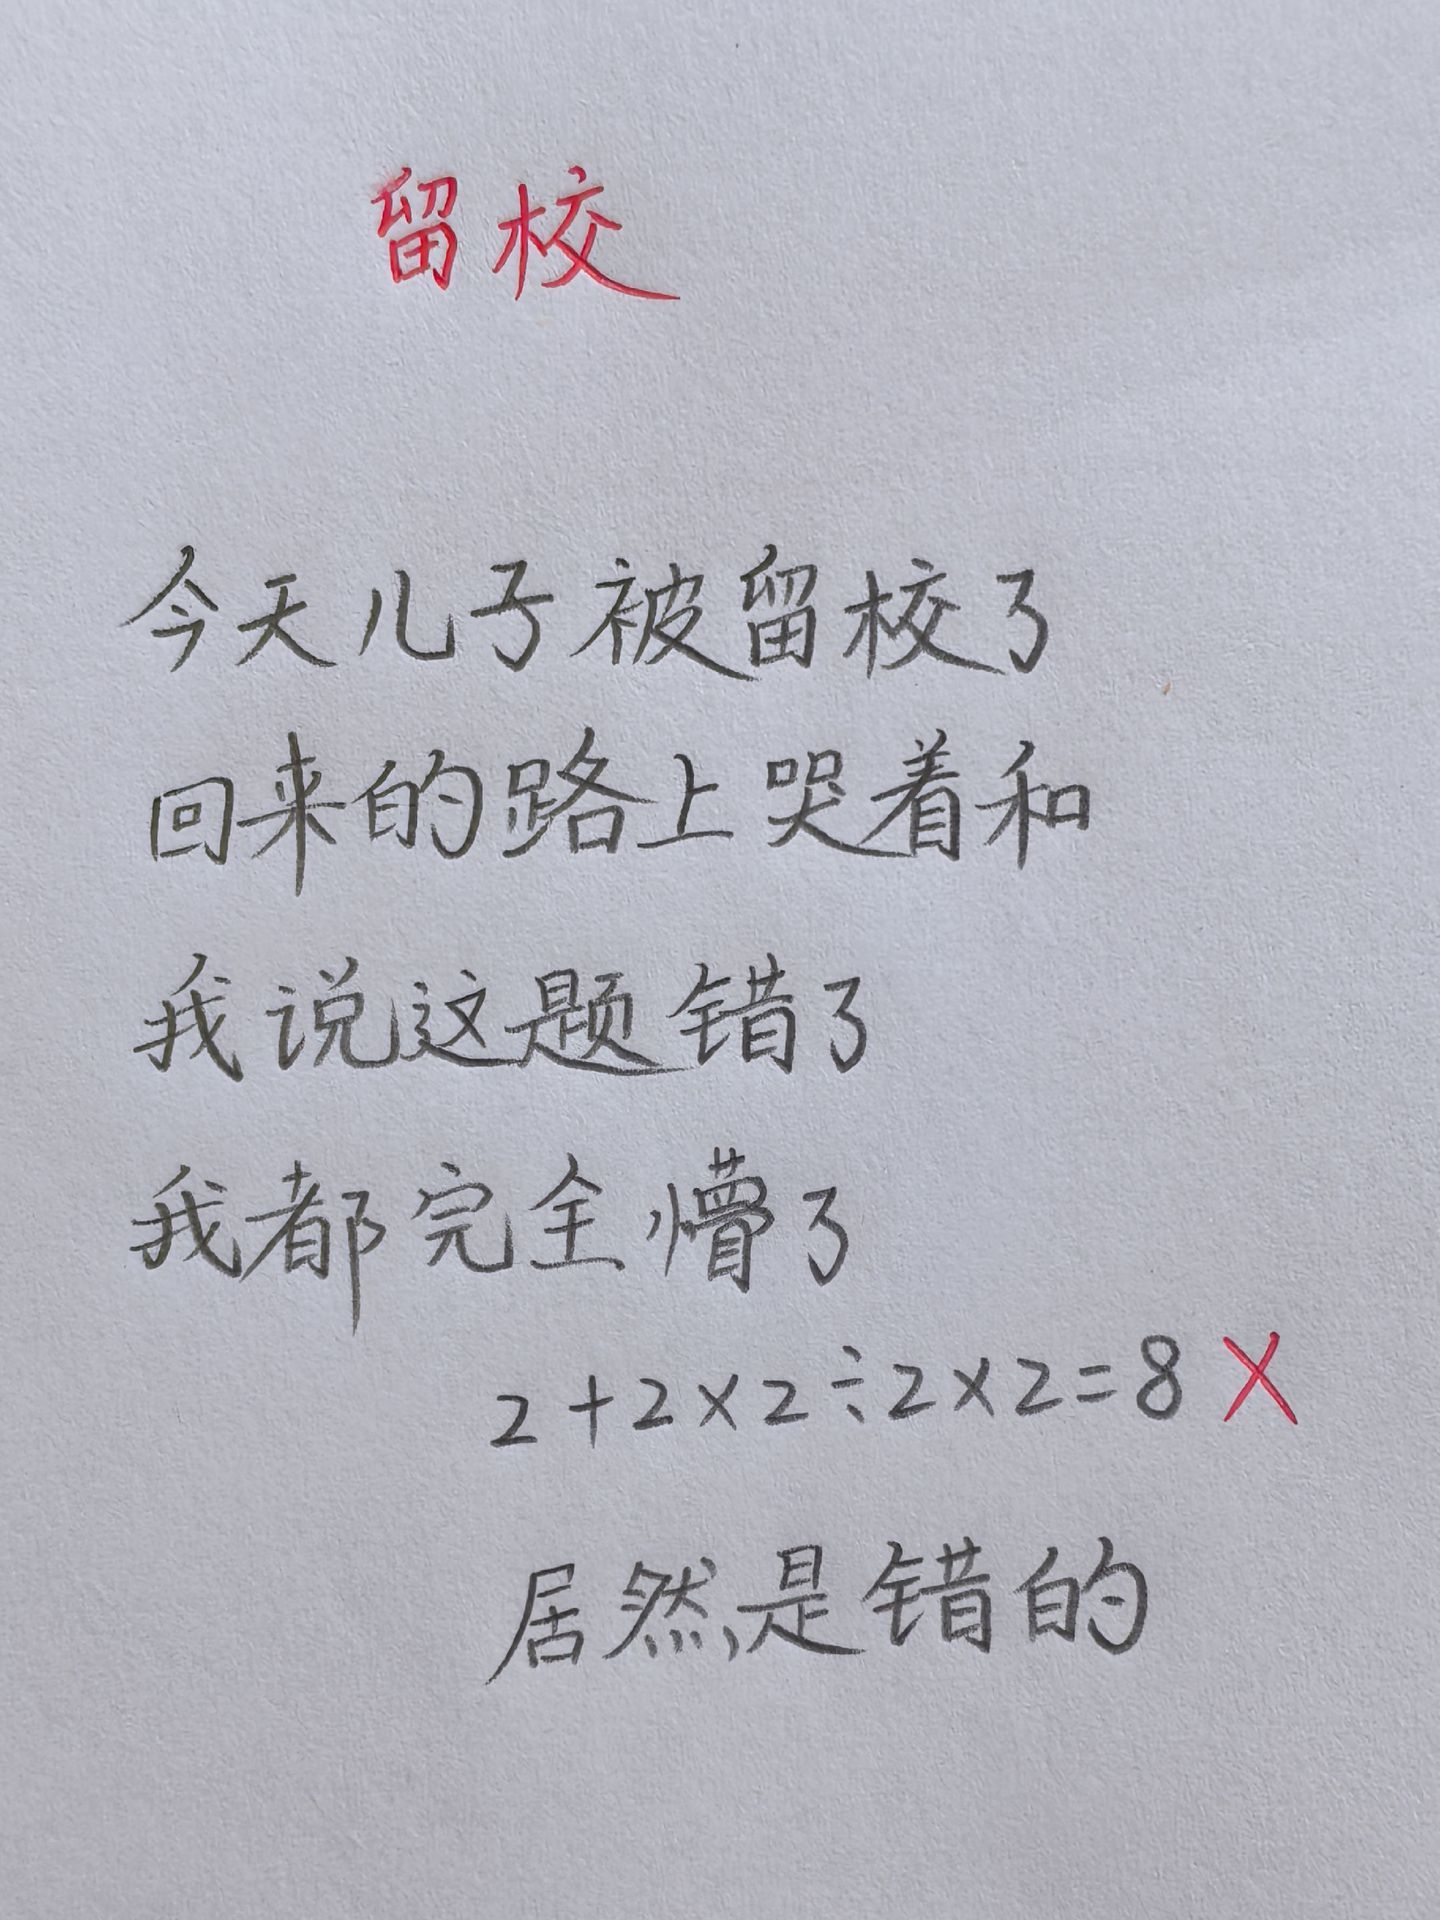 留校
今天儿子被留校了
回来的路上哭着和
我说这题错了
我都完全懵了
2+2×2÷2×2=8 ×
居然是错的